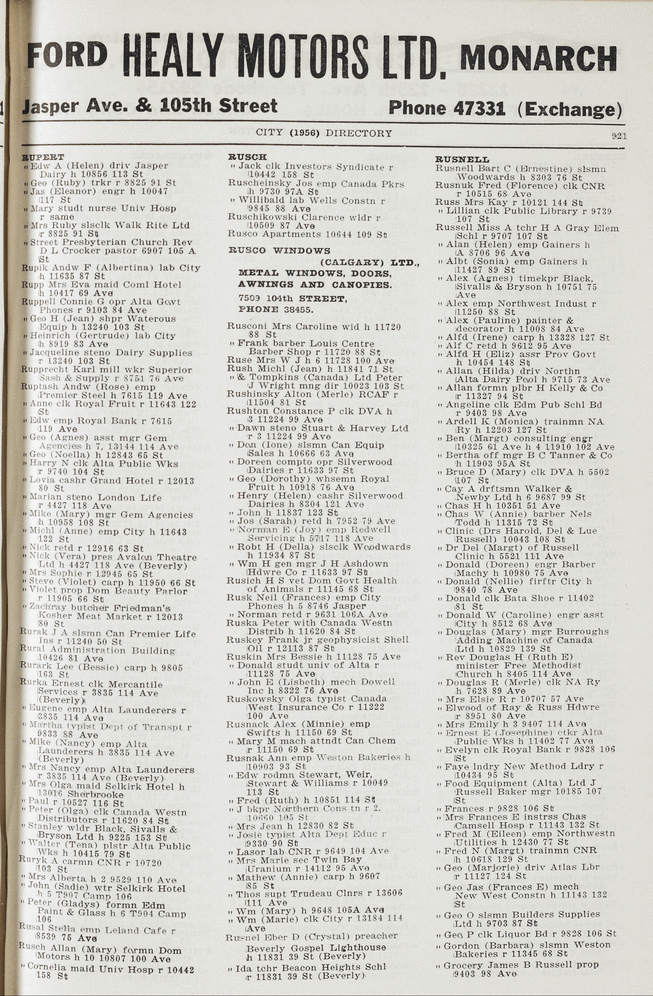 FORD HEALY MOTORS LTD. MONARCH
Jasper Ave. & 105th Street Phone 47331 (Exchange)
CITY (1956) DIRECTORY 921
RUPERT
" Edw A (Helen) driv Jasper
Dairy h 10856 113 St
" Geo (Ruby) trkr r 8825 91 St
" Jas (Eleanor) engr h 10047
117 St
" Mary studt nurse Univ Hosp
r same
" Mrs Ruby slsclk Walk Rite Ltd
r 8825 91 St
" Street Presbyterian Church Rev
D L Crocker pastor 6907 105 A
St
Rupik Andw F (Albertina) lab City
h 11635 87 St
Rupp Mrs Eva maid Coml Hotel
h 10417 69 Ave
Ruppell Connie G opr Alta Govt
Phones r 9103 84 Ave
" Geo H (Jean) shpr Waterous
Equip h 13240 103 St
" Heinrich (Gertrude) lab City
h 8919 83 Ave
" Jacqueline steno Dairy Supplies
r 13240 103 St
Rupprecht Karl mill wkr Superior
Sash & Supply r 8751 76 Ave
Ruptash Andw (Rose) emp
Premier Steel h 7615 119 Ave
" Anne clk Royal Fruit r 11643 122
St
" Edw emp Royal Bank r 7615
119 Ave
" Geo (Agnes) asst mgr Gem
Agencies h 7, 13144 114 Ave
" Geo (Noella) h 12843 65 St
" Harry N clk Alta Public Wks
r 9740 104 St
" Lovia cashr Grand Hotel r 12013
80 St
" Marian steno London Life
r 4427 118 Ave
" Mike (Mary) mgr Gem Agencies
h 10958 108 St
" Michl (Anne) emp City h 11643
122 St
" Nick retd r 12916 63 St
" Nick (Vera) pres Avalon Theatre
Ltd h 4427 118 Ave (Beverly)
" Mrs Sophie r 12945 65 St
" Steve (Violet) carp h 11950 66 St
" Violet prop Dom Beauty Parlor
r 11905 66 St
" Zachray butcher Friedman's
Kosher Meat Market r 12013
80 St
Rurak J A slsmn Can Premier Life
Ins r 11240 50 St
Rural Administration Building
10426 81 Ave
Rurark Lee (Bessie) carp h 9805
163 St
Rurka Ernest clk Mercantile
Services r 3835 114 Ave
(Beverly)
" Eugene emp Alta Launderers r
3835 114 Ave
" Martha typist Dept of Transpt r
9833 88 Ave
" Mike (Nancy) emp Alta
Launderers h 3835 114 Ave
(Beverly)
" Mrs Nancy emp Alta Launderers
r 3835 114 Ave (Beverly)
" Mrs Olga maid Selkirk Hotel h
13016 Sherbrooke
" Paul r 10527 116 St
" Peter (Olga) clk Canada Westn
Distributors r 11620 84 St
" Stanley wldr Black, Sivalls &
Bryson Ltd h 9225 153 St
" Walter (Tena) plstr Alta Public
Wks h 10415 79 St
Ruryk A carmn CNR r 10720
103 St
" Mrs Alberta h 2 9529 110 Ave
" John (Sadie) wtr Selkirk Hotel
h 5 T907 Camp 106
" Peter (Gladys) formn Edm
Paint & Glass h 6 T904 Camp
106
Rusal Stella emp Leland Cafe r
8539 75 Ave
Rusch Allan (Mary) formn Dom
Motors h 10 10807 100 Ave
" Cornelia maid Univ Hosp r 10442
158 St
RUSCH
" Jack clk Investors Syndicate r
10442 158 St
Ruscheinsky Jos emp Canada Pkrs
h 9730 97A St
" Willibald lab Wells Constn r
9845 88 Ave
Ruschikowski Clarence wldr r
10509 87 Ave
Rusco Apartments 10644 109 St
RUSCO WINDOWS
(CALGARY) LTD.,
METAL WINDOWS, DOORS,
AWNINGS AND CANOPIES.
7509 104th STREET,
PHONE 38455.
Rusconi Mrs Caroline wid h 11720
88 St
" Frank barber Louis Centre
Barber Shop r 11720 88 St
Ruse Mrs W J h 6 11728 100 Ave
Rush Michl (Jean) h 11841 71 St
" & Tompkins (Canada) Ltd Peter
J Wright mng dir 10023 103 St
Rushinsky Alton (Merle) RCAF r
11504 81 St
Rushton Constance P clk DVA h
3 11224 99 Ave
" Dawn steno Stuart & Harvey Ltd
r 3 11224 99 Ave
" Don (Ione) slsmn Can Equip
Sales h 10666 63 Ave
" Doreen compto opr Silverwood
Dairies r 11633 97 St
" Geo (Dorothy) whsemn Royal
Fruit h 10918 76 Ave
" Henry (Helen) cashr Silverwood
Dairies h 8304 121 Ave
" John h 11837 123 St
" Jos (Sarah) retd h 7952 79 Ave
" Norman E (Joy) emp Redwell
Servicing h 5717 118 Ave
" Robt H (Della) slsclk Woodwards
h 11934 87 St
" Wm H gen mgr J H Ashdown
Hdwre Co r 11633 97 St
Rusich H S vet Dom Govt Health
of Animals r 11145 68 St
Rusk Neil (Frances) emp City
Phones h 5 8746 Jasper
" Norman retd r 9631 106A Ave
Ruska Peter with Canada Westn
Distrib h 11620 84 St
Ruskey Frank jr geophysicist Shell
Oil r 12113 87 St
Ruskin Mrs Bessie h 11128 75 Ave
" Donald studt univ of Alta r
11128 75 Ave
" John E (Lisbeth) mech Dowell
Inc h 8322 76 Ave
Ruskowsky Olga typist Canada
West Insurance Co r 11222
100 Ave
Rusnack Alex (Minnie) emp
Swifts h 11150 69 St
" Mary M mach attndt Can Chem
r 11150 69 St
Rusnak Ann emp Weston Bakeries h
10903 93 St
" Edw rodmn Stewart, Weir,
Stewart & Williams r 10049
113 St
" Fred (Ruth) h 10851 114 St
" J bkpr Northern Cons tn r 2,
10660 105 St
" Mrs Jean h 12830 82 St
" Josie typist Alta Dept Educ r
9330 90 St
" Lasor lab CNR r 9649 104 Ave
" Mrs Marie sec Twin Bay
Uranium r 14112 95 Ave
" Mathew (Annie) carp h 9607
85 St
" Thos supt Trudeau Clnrs r 13606
111 Ave
" Wm (Mary) h 9648 105A Ave
" Wm (Marie) clk City r 13184 114
Ave
Rusnel Eber D (Crystal) preacher
Beverly Gospel Lighthouse
h 11831 39 St (Beverly)
" Ida tchr Beacon Heights Schl
r 11831 39 St (Beverly)
RUSNELL
Rusnell Bart C (Ernestine) slsmn
Woodwards h 8303 76 St
Rusnuk Fred (Florence) clk CNR
r 10515 68 Ave
Russ Mrs Kay r 10121 144 St
" Lillian clk Public Library r 9739
107 St
Russell Miss A tchr H A Gray Elem
Schl r 9707 107 St
" Alan (Helen) emp Gainers h
A 8706 96 Ave
" Albt (Sonia) emp Gainers h
11427 89 St
" Alex (Agnes) timekpr Black,
Sivalls & Bryson h 10751 75
Ave
" Alex emp Northwest Indust r
11250 88 St
" Alex (Pauline) painter &
decorator h 11008 84 Ave
" Alfd (Irene) carp h 13328 127 St
" Alf C retd h 9612 95 Ave
" Alfd H (Eliz) assr Prov Govt
h 10454 148 St
" Allan (Hilda) driv Northn
Alta Dairy Pool h 9715 73 Ave
" Allan formn plbr H Kelly & Co
r 11327 94 St
" Angeline clk Edm Pub Schl Bd
r 9403 98 Ave
" Ardell K (Monica) trainmn NA
Ry h 12203 127 St
" Ben (Margt) consulting engr
10325 61 Ave h 4 11910 102 Ave
" Bertha off mgr B C Tanner & Co
h 11903 95A St
" Bruce D (Mary) clk DVA h 5502
107 St
" Cay A drftsmn Walker &
Newby Ltd h 6 9687 99 St
" Chas H h 10351 51 Ave
" Chas W (Annie) barber Nels
Todd h 11315 72 St
" Clinic (Drs Harold, Del & Lue
Russell) 10043 108 St
" Dr Del (Margt) of Russell
Clinic h 5521 111 Ave
" Donald (Doreen) engr Barber
Machy h 10980 75 Ave
" Donald (Nellie) firftr City h
9840 78 Ave
" Donald clk Bata Shoe r 11402
81 St
" Donald W (Caroline) engr asst
City h 8512 68 Ave
" Douglas (Mary) mgr Burroughs
Adding Machine of Canada
Ltd h 10829 139 St
" Rev Douglas H (Ruth E)
minister Free Methodist
Church h 8405 114 Ave
" Douglas R (Merle) clk NA Ry
h 7628 89 Ave
" Mrs Elsie R r 10707 57 Ave
" Elwood of Ray & Russ Hdwre
r 8951 80 Ave
" Mrs Emily h 3 9407 114 Ave
" Ernest E (Josephine) ctkr Alta
Public Wks h 11402 77 Ave
" Evelyn clk Royal Bank r 9828 106
St
" Faye lndry New Method Ldry r
10434 95 St
" Food Equipment (Alta) Ltd J
Russell Baker mgr 10185 107
St
" Frances r 9828 106 St
" Mrs Frances E instrss Chas
Camsel Hosp r 11143 132 St
" Fred M (Eileen) emp Northwestn
Utilities h 12430 77 St
" Fred N (Margt) trainmn CNR
h 10618 129 St
" Geo (Marjorie) driv Atlas Lbr
r 11127 124 St
" Geo Jas (Frances E) mech
New West Constn h 11143 132
St
" Geo O slsmn Builders Supplies
Ltd h 9703 87 St
" Geo P clk Liquor Bd r 9828 106 St
" Gordon (Barbara) slsmn Weston
Bakeries h 11345 68 St
" Grocery James B Russell prop
9403 98 Ave